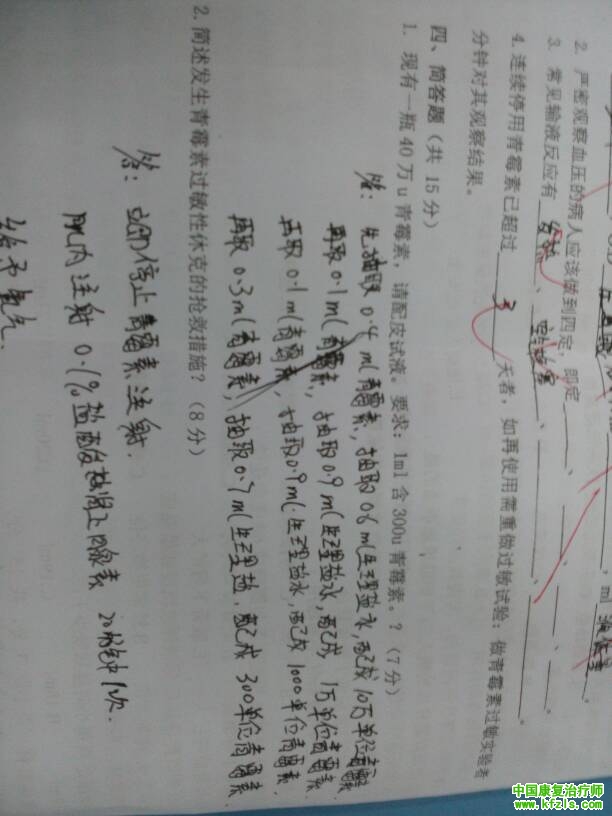 2. 严密观察血压的病人应该做到四定,即定____、____、____、____。
3. 常见输液反应有 发热、空气栓塞、____、____。
4. 连续停用青霉素已超过 3 天者,如再使用需重做过敏试验;做青霉素过敏实验者
分钟对其观察结果。
四、简答题(共 15 分)
1. 现有一瓶 40 万 u 青霉素,请配皮试液。要求:1ml 含 300u 青霉素。?(7 分)
答:先抽取 0.4ml青霉素,抽取 0.6ml生理盐水,配成 10万单位青霉素
再取 0.1ml青霉素,抽取 0.9ml生理盐水,配成 1万单位青霉素
再取 0.1ml青霉素,抽取 0.9ml生理盐水,配成 1000单位青霉素.
再取 0.3ml青霉素,抽取 0.7ml生理盐,配成 300单位青霉素.
2. 简述发生青霉素过敏性休克的抢救措施?(8 分)
答:立即停止青霉素注射.
肌内注射 0.1%盐酸肾上腺素 20分钟1次.
给予氧气.
中国康复治疗师
www.kfzls.com